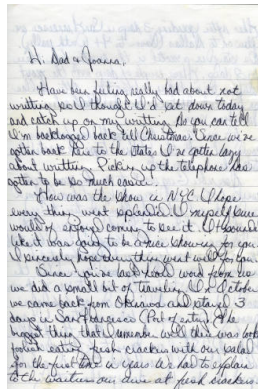 Hi Dad & Joanna,
Have been feeling really bad about not
writting so I thought I'd set down today
and catch up on my writting. As you can tell
I'm backlogged back till Christmas. Since we've
gotten back here to the States I've gotten lazy
about writting. Picking up the telephone has
gotten to be so much easier.
How was the show in NYC. I hope
every thing went splendid. I myself
would of enjoyed coming to see it. It sounded
like it was going to be a nice showing for you.
I sincerely hope every thing went well for you.
Since you've last word from us
we did a small bit of traveling. In October
we came back from Okinawa and stayed 3
days in San Francisco (Port of entry). The
biggest thing that I remember well there was
foolish eating fresh crackers with our salad
for the first time in years. We had to explain
to the waitress our at fresh crackers